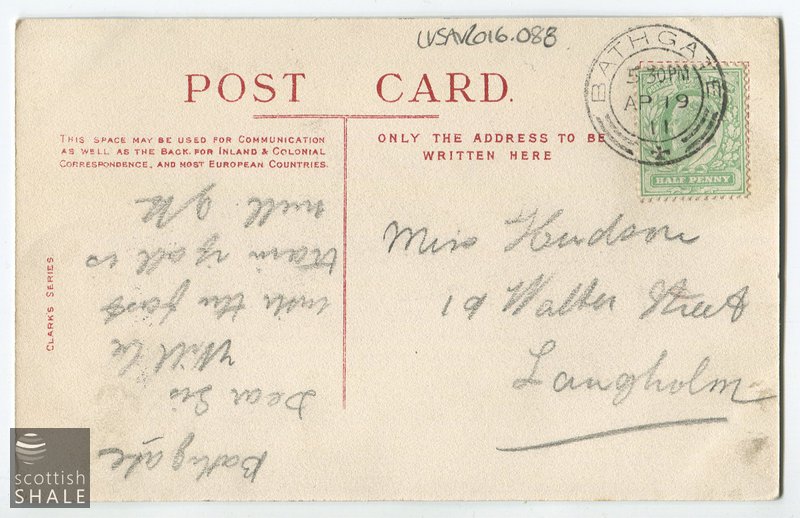 LVSAV2016.088
POST CARD.
THIS SPACE MAY BE USED FOR COMMUNICATION
AS WELL AS THE BACK, FOR INLAND & COLONIAL
CORRESPONDENCE, AND MOST EUROPEAN COUNTRIES.
ONLY THE ADDRESS TO BE
WRITTEN HERE
BATHGATE
5.30PM
AP 19
11
HALF PENNY
Miss Hudson
19 Walter Street
Langholm
Bathgate
Dear Sis
Will be
with the fast
train if all is
well
CLARK'S SERIES
scottish
SHALE